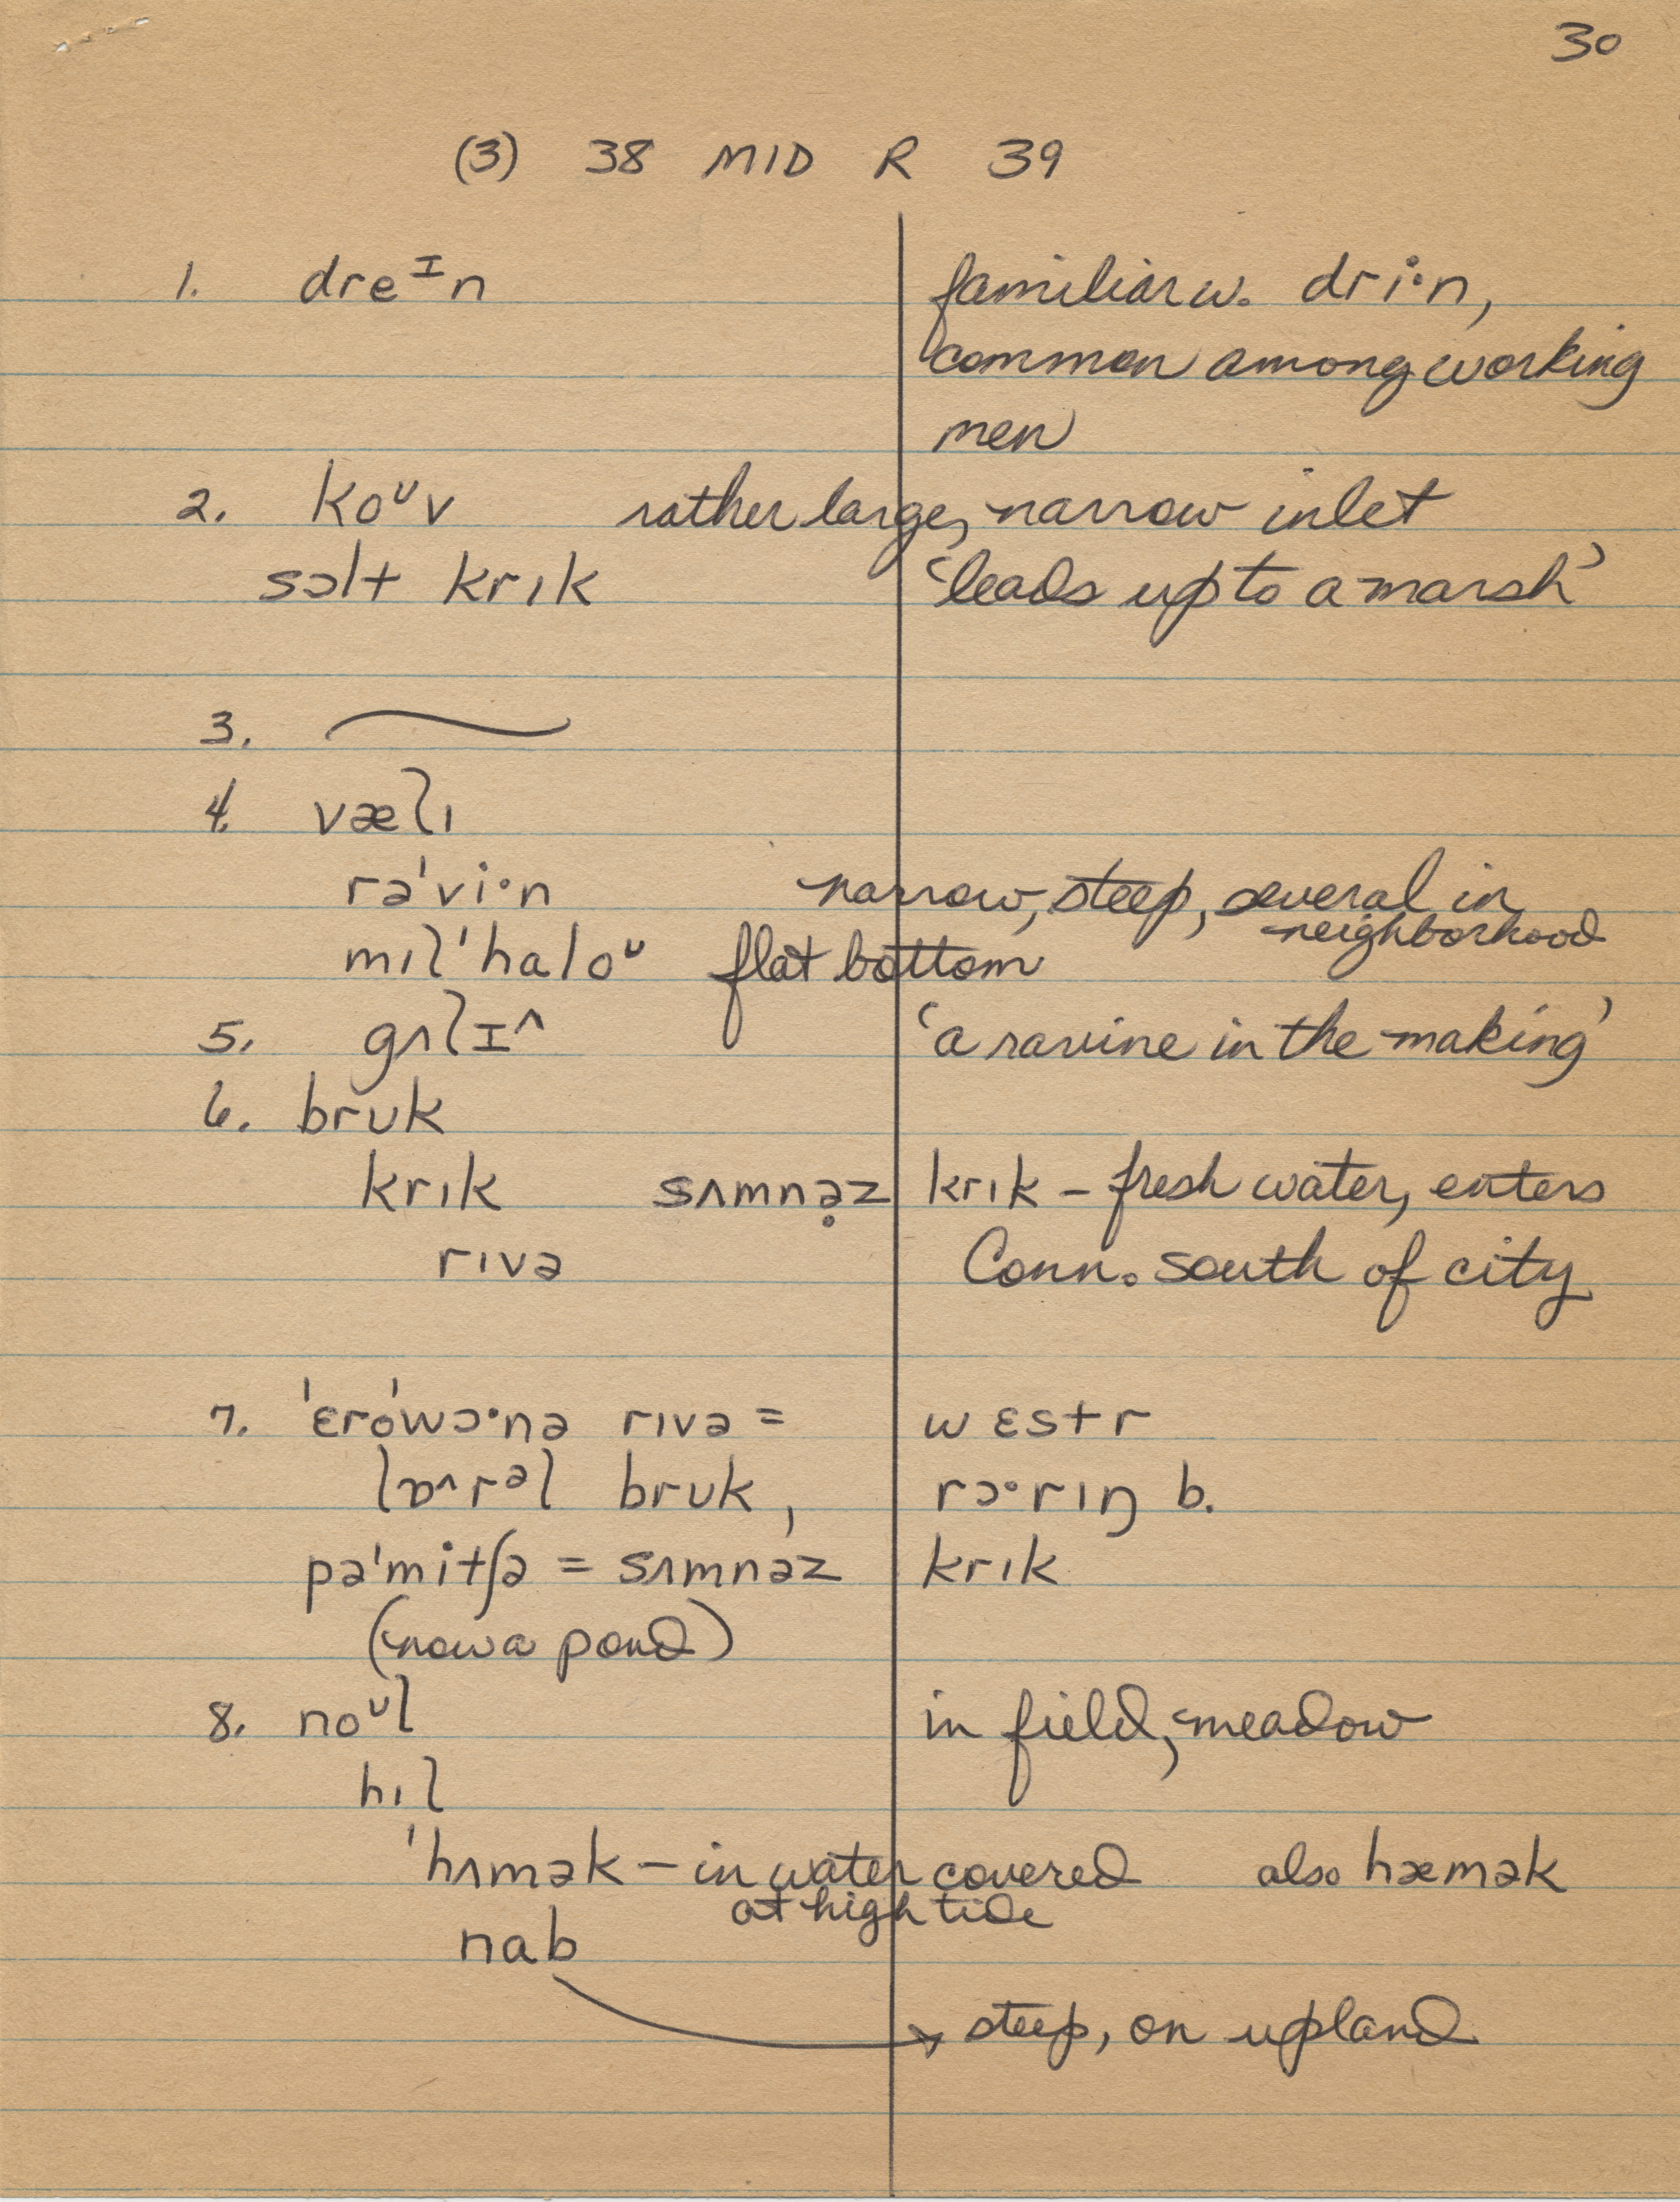 30
(3) 38 MID R 39
1. dreᶦn familiar w. dri·n,
common among working
men
2. koᶷv rather large, narrow inlet
sɔlt krık ‘leads up to a marsh’
3. ⁓
4. væɫı
rəˈvi·n narrow, steep, several in
neighborhood
mıɫˈhaloᶷ flat bottom
5. gʌɫɪ^ ‘a ravine in the making’
6. brʊk
krık sʌmnə̣z krık – fresh water, enters
rıvə Conn. south of city
7. ˈɛroˈwɔ·nə rıvə = wɛstr
lɒ^rᵊl brʊk, rɔ·rıŋ b.
pəˈmitʃə = sʌmnəz krık
(now a pond)
8. noᶷl in field, meadow
hıl
ˈhʌmək – in water covered also hæmək
at high tide
nab
→ steep, on upland